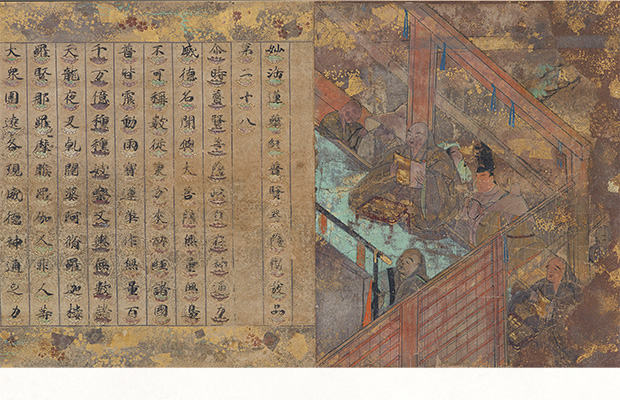 妙法蓮華經普賢菩薩勸發品
第二十八
尒時普賢菩薩以自在神通力
威德名聞與大菩薩無量無邊
不可稱數從東方來所經諸國
普皆震動雨寶蓮華作無量百
千万億種種妓樂又與無數諸
天龍夜叉乾闥婆阿脩羅迦樓
羅緊那羅摩睺羅伽人非人等
大衆圍遶各現威德神通之力